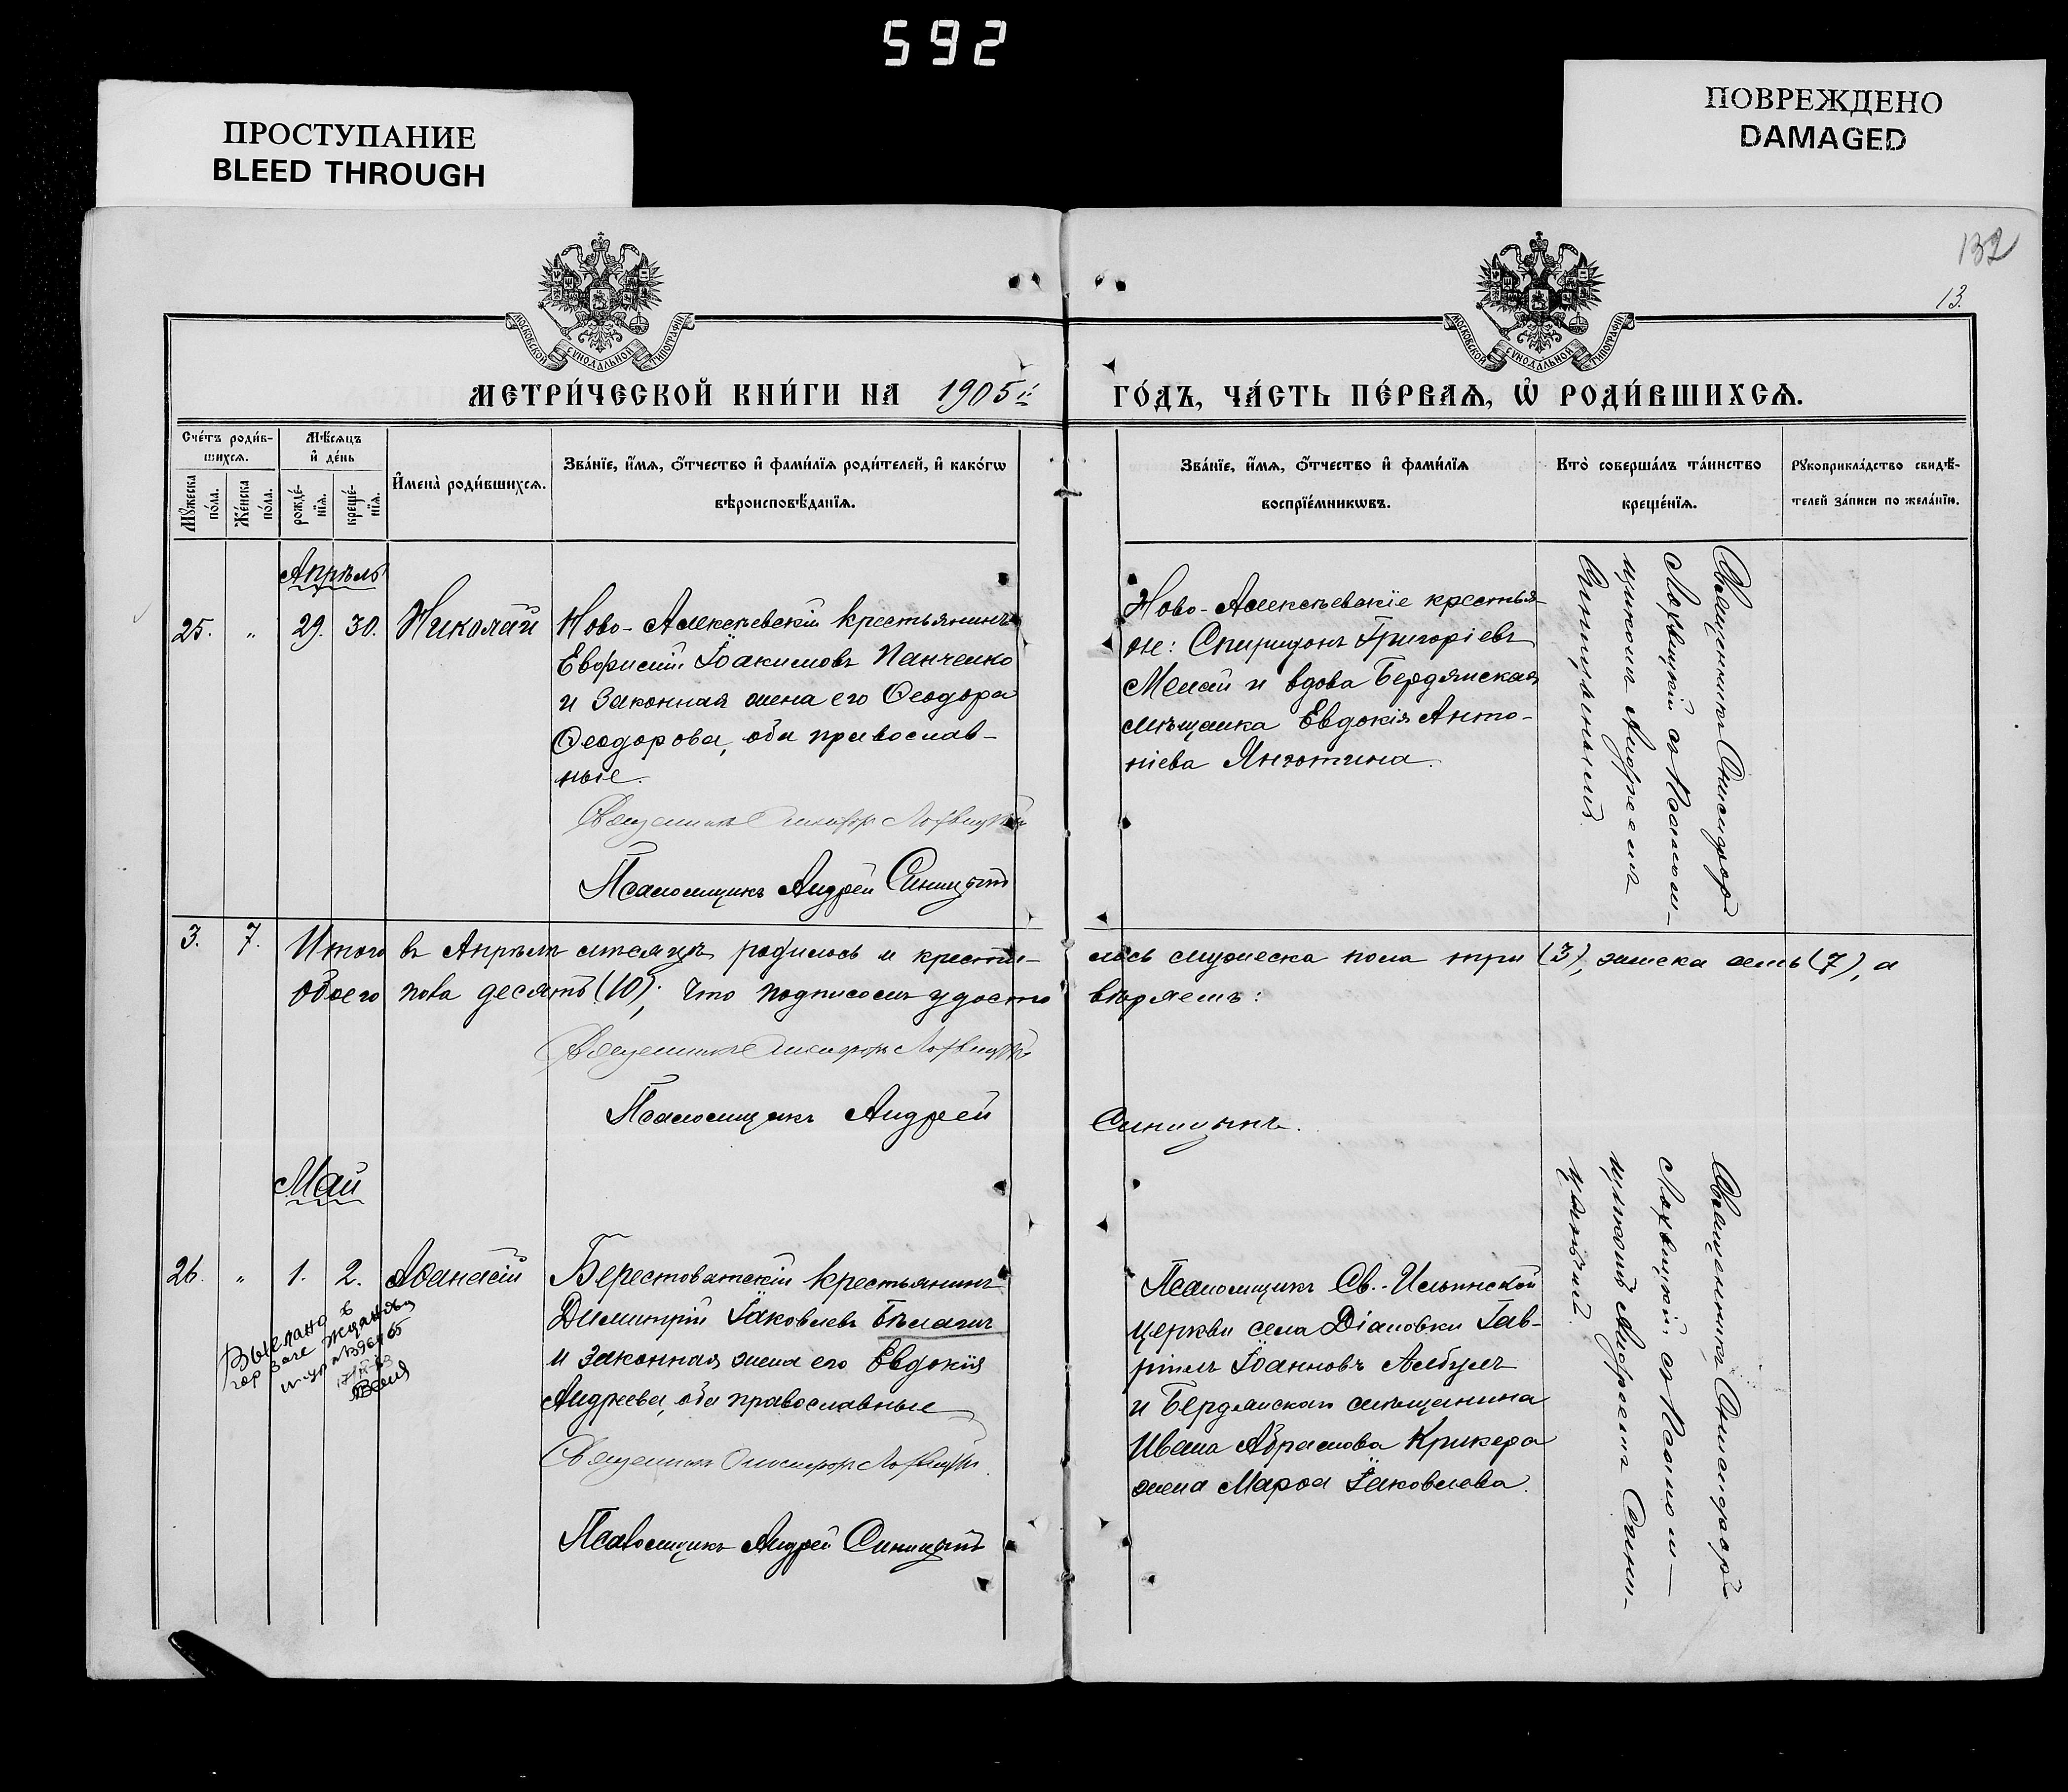 592
ПРОСТУПАНИЕ
BLEED THROUGH
ПОВРЕЖДЕНО
DAMAGED
132
13.
МОСКОВСКОЙ СѴНОДАЛЬНОЙ ТИПОГРАФІИ
МОСКОВСКОЙ СѴНОДАЛЬНОЙ ТИПОГРАФІИ
МЕТРИ́ЧЕСКОЙ КНИ́ГИ НА 1905й ГО́ДЪ, ЧА́СТЬ ПЕ́РВАѦ, Ѡ҆ РОДИ́ВШИХСѦ.
Сче́тъ роди́в-
шихсѧ.
Мꙋ́жеска по́ла.
Же́нска по́ла.
Мѣ́сѧцъ
и҆ де́нь
рожде́-
нїѧ.
креще́-
нїѧ.
И҆мена̀ роди́вшихсѧ.
Зва́нїе, и҆́мѧ, ѻ҆́тчество и҆ фами́лїѧ роди́телей, и҆ како́гѡ
вѣроисповѣ́данїѧ.
Зва́нїе, и҆́мѧ, ѻ҆́тчество и҆ фами́лїѧ
воспрїе́мникѡвъ.
Кто̀ соверша́лъ та́инство
креще́нїѧ.
Рꙋкоприкла́дство свидѣ́-
телей за́писи по жела́нїю.
Апрѣль
25. " 29. 30. Николай
Ново-Алексѣевскій крестьянинъ
Евфимій Іоакимовъ Панченко
и законная жена его Ѳеодора
Ѳеодорова, оба православ-
ные.
Священникъ Никифор Лохвицкій
Псаломщикъ Андрей Синицынъ
Ново-Алексѣевскіе крестья-
не: Спиридонъ Григоріевъ
Мелай и вдова Бердянская
мѣщанка Евдокія Анто-
ніева
Священникъ Никифор
Лохвицкій съ Псалом-
щикомъ Андреемъ
Синицынымъ.
3. 7. Итого въ Апрѣлѣ мѣсяцѣ родилось и крести-
лось мужеска пола три (3), женска семь (7), а
обоего пола десять (10); что подписомъ удосто
вѣряемъ:
Священникъ Никифор Лохвицкій
Псаломщикъ Андрей Синицынъ.
Май
26. " 1. 2. Аѳанасій
Берестоватскій крестьянинъ
Димитрій Іаковлевъ Бѣлагинъ
и законная жена его Евдокія
Андреева, оба православные
Священникъ Никифор Лохвицкій
Псаломщикъ Андрей Синицынъ
Выслано в
Псаломщикъ Св.-Ильинской
церкви села Діановки Гав-
ріилъ Іоанновъ Албулъ
и Бердянскаго мѣщанина
Ивана Абрамова Крикера
жена Марѳа Іаковлева.
Священникъ Никифор
Лохвицкій, съ Псалом-
щикомъ Андреемъ Сини-
цынымъ.